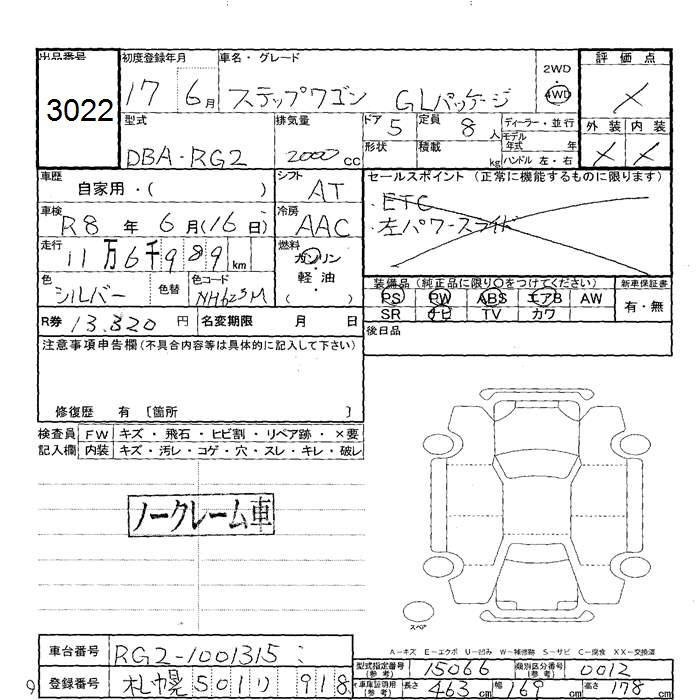 出品番号 初度登録年月 車名・グレード 評価点
3022 17 6月 ステップワゴン GLパッケージ 2WD ・ 4WD ×
型式 排気量 ドア 5 定員 8人 ディーラー・並行 外装 内装
DBA-RG2 2000cc 形状 積載 kg モデル年式 年 × ×
ハンドル 左・右
車歴 シフト セールスポイント (正常に機能するものに限ります)
自家用・( ) AT ・ETC
車検 冷房 左パワースライド
R8年 6月(16日) AAC
走行 燃料
11万6千989km ガソリン・軽油・( )
色 色替 色コード 装備品 (純正品に限り○をつけてください) 新車保証書
シルバー NH623M PS PW ABS エアB AW 有・無
SR ナビ TV カワ
R券 13.820円 名変期限 月 日 後日品
注意事項申告欄(不具合内容等は具体的に記入して下さい)
修復歴 有 〔箇所 〕
検査員 FW キズ・飛石・ヒビ割・リペア跡・×要
記入欄 内装 キズ・汚レ・コゲ・穴・スレ・キレ・破レ
ノークレーム車
スペア
A−キズ E−エクボ U−凹み W−補修跡 S−サビ C−腐食 XX−交換済
車台番号 RG2-1001315 型式指定番号(参考) 15066 類別区分番号(参考) 0012
登録番号 札幌 501 り 918 車庫証明用(参考) 長さ 463cm 幅 169cm 高さ 178cm